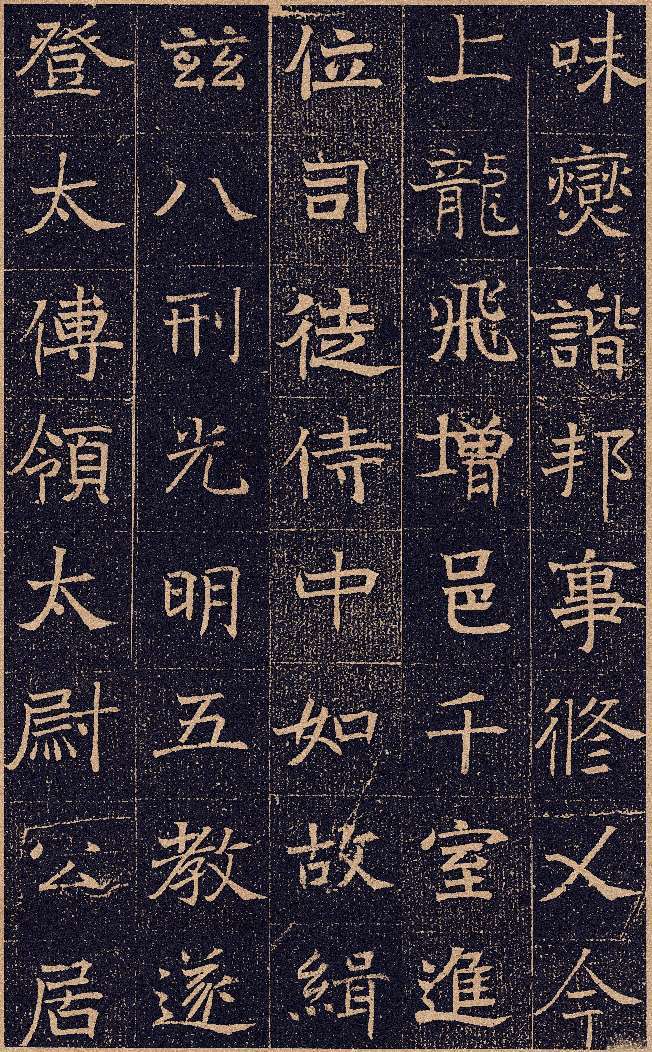 味燮諧邦事修乂今
上龍飛增邑千室進
位司徒侍中如故緝
茲八刑光明五教遂
登太傅領太尉公居